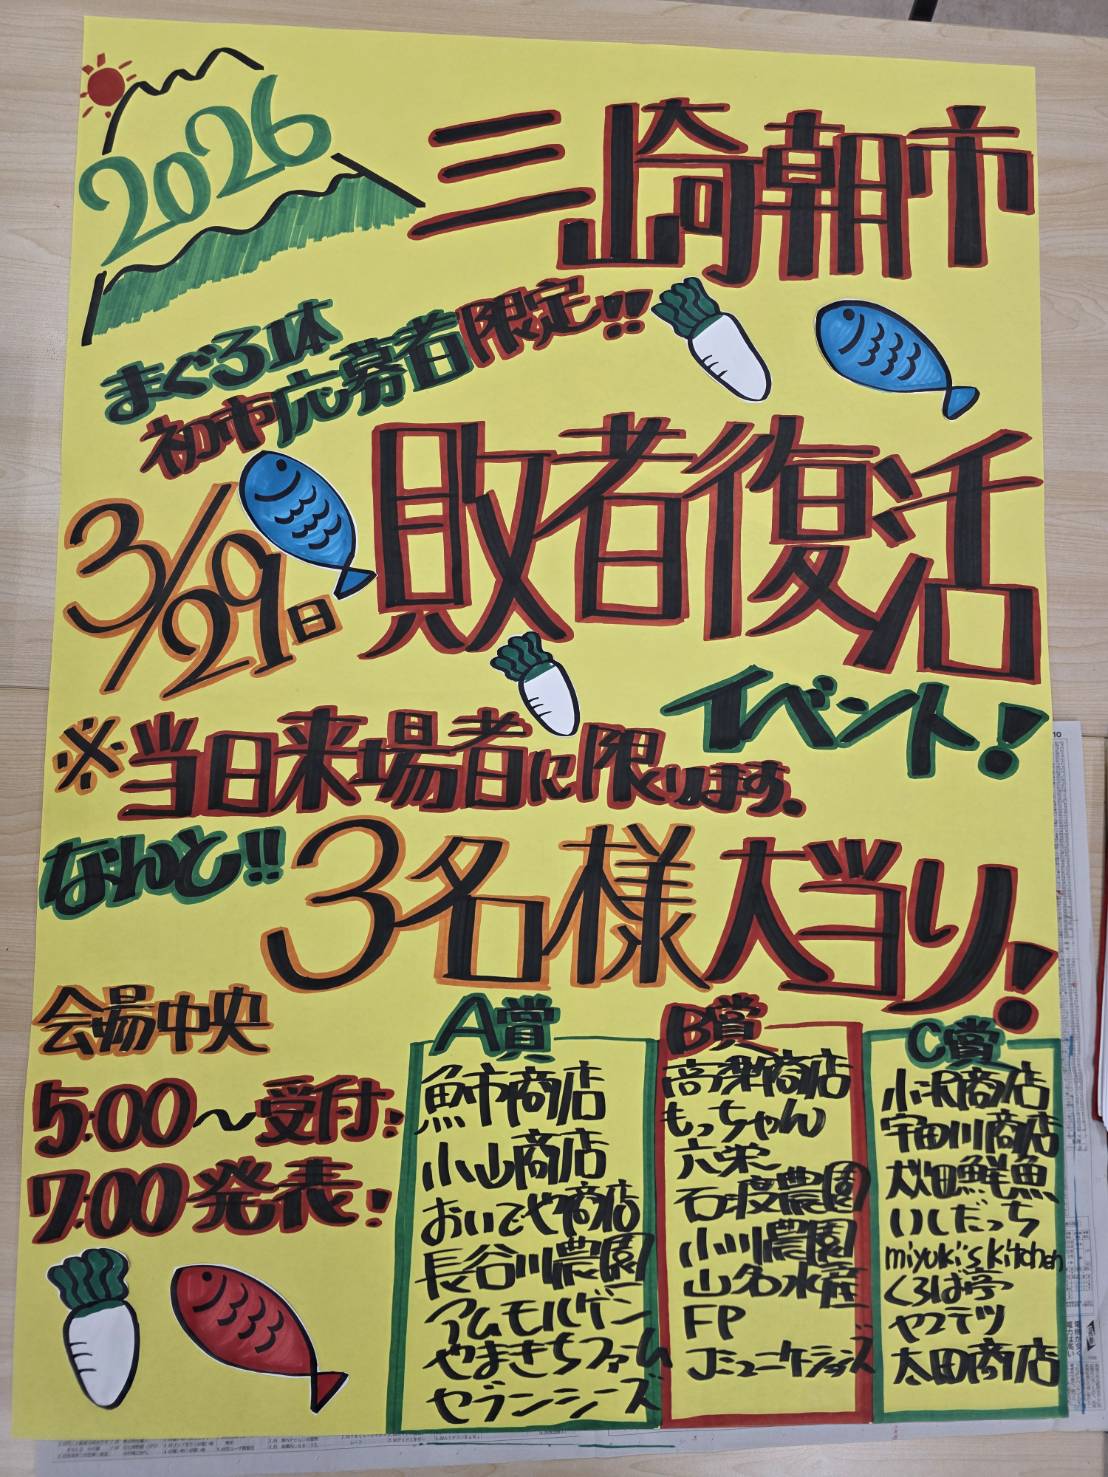 2026
三崎朝市
まぐろ1体
初市応募者限定!!
3/29日
敗者復活
イベント!
※当日来場者に限ります。
なんと!! 3名様大当り!
会場中央
5:00〜受付!
7:00発表!
A賞
魚市商店
小山商店
おいでや商店
長谷川農園
アムモルゲン
やまきちファーム
セブンシーズ
B賞
高梨商店
もっちゃん
六栄
石渡農園
小川農園
山名水産
FP
コミュニケーションズ
C賞
小沢商店
宇田川商店
畑鮮魚
いしだっち
miyuki's kitchen
くろば亭
やつテツ
太田商店